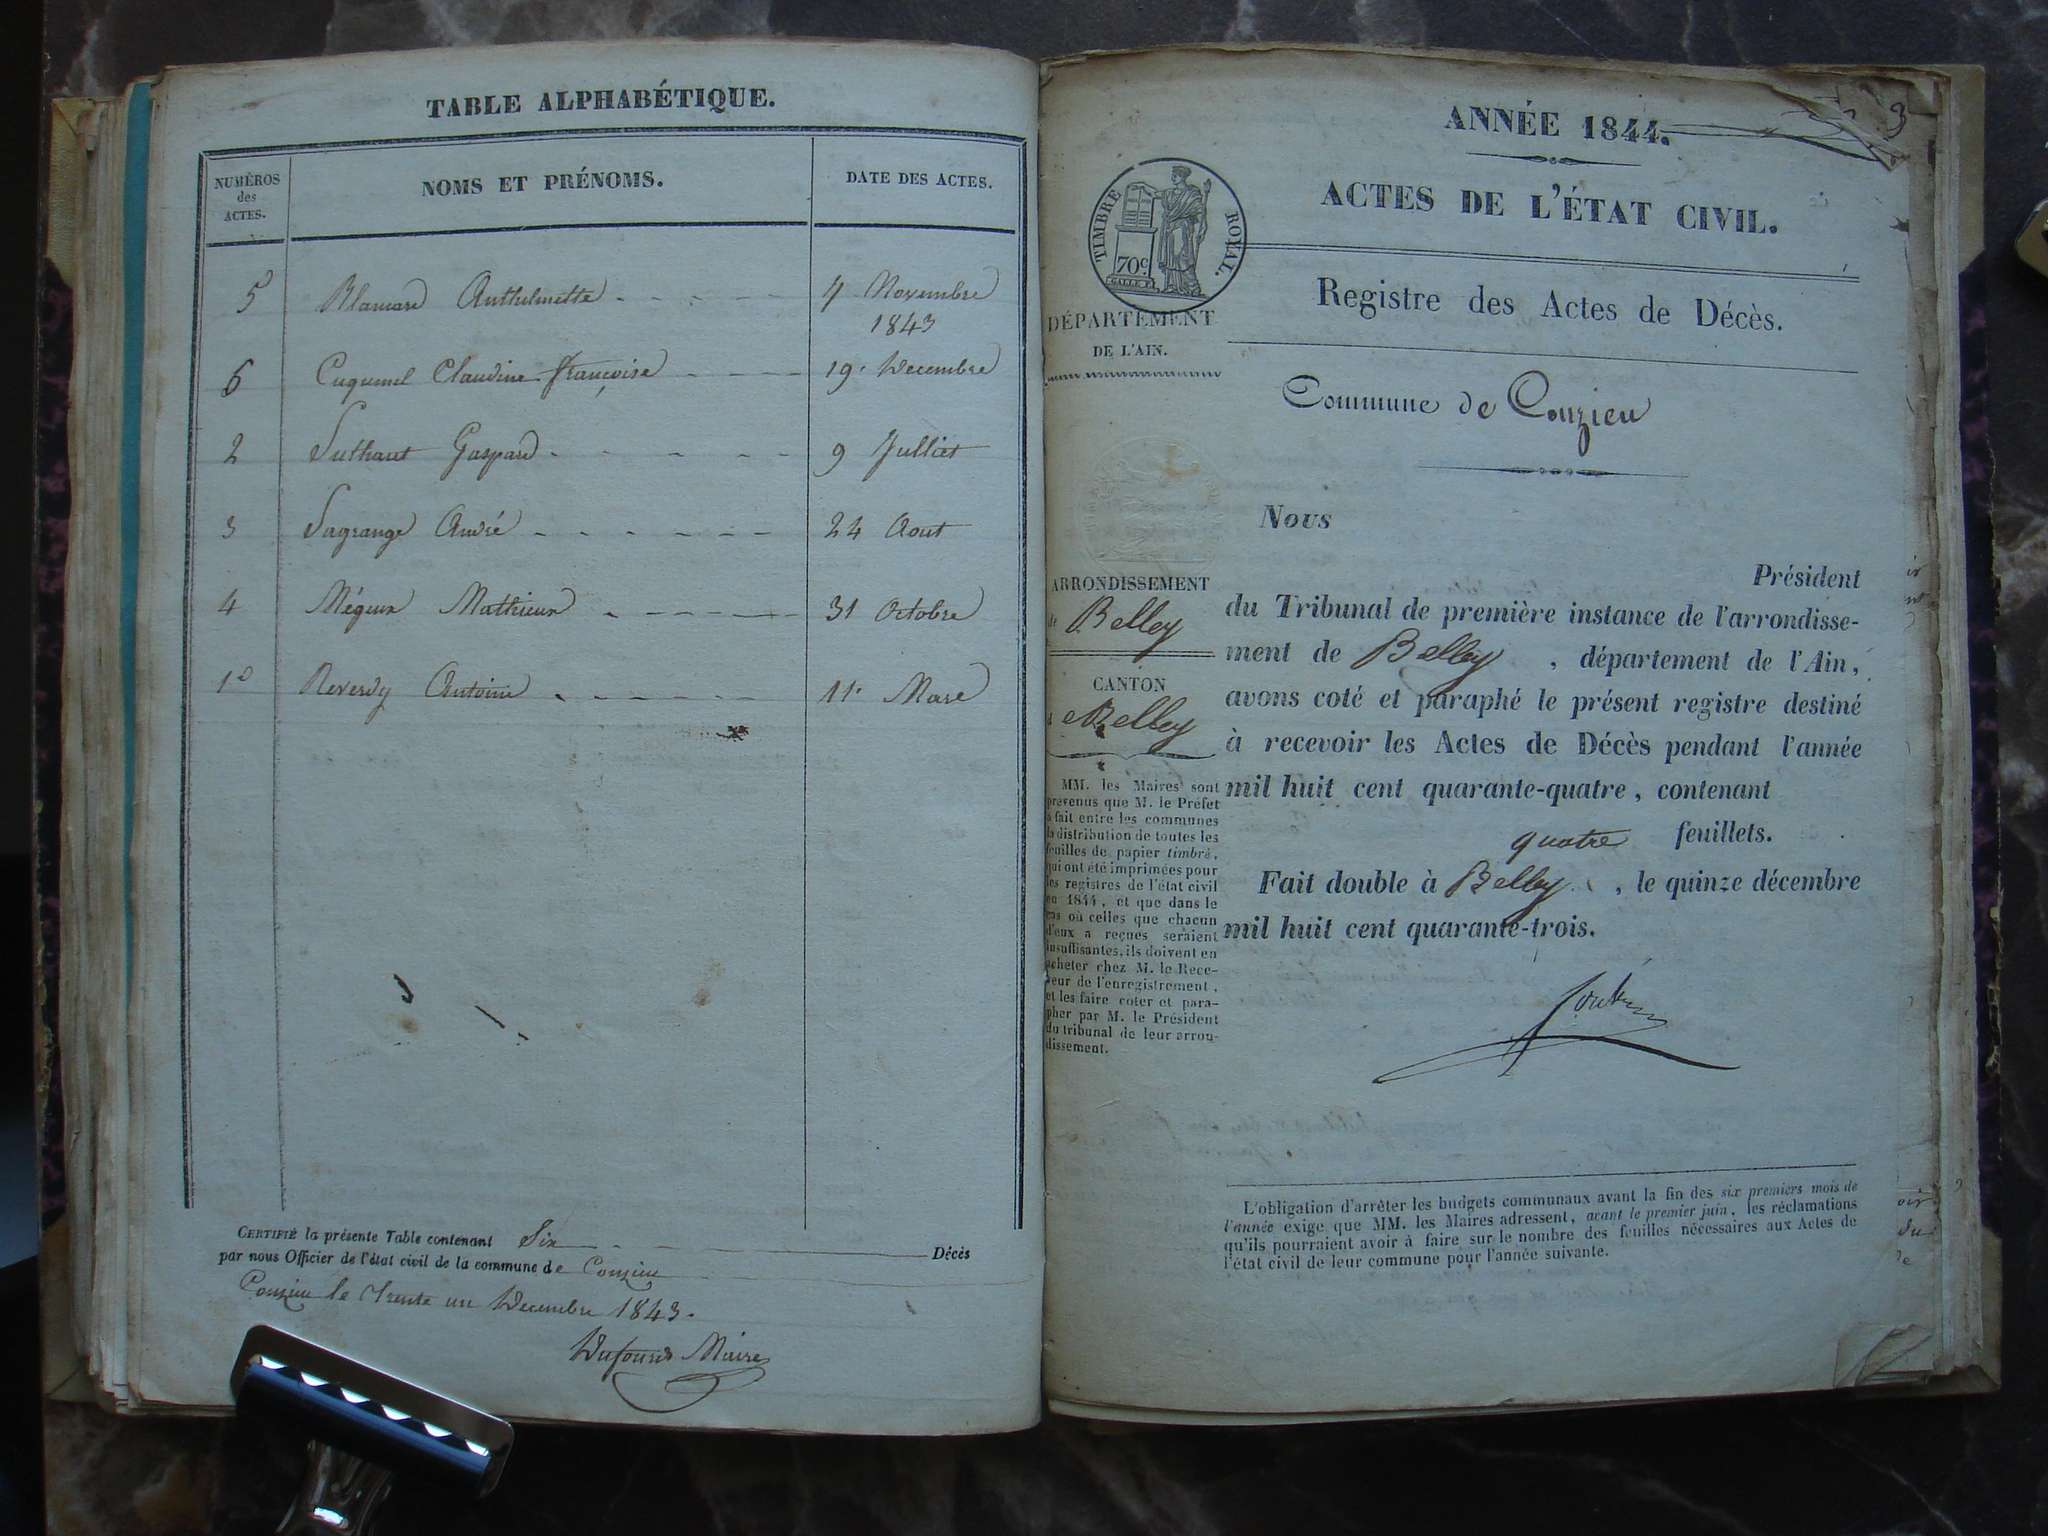 TABLE ALPHABÉTIQUE.
NUMÉROS des ACTES.
NOMS ET PRÉNOMS.
DATE DES ACTES.
5 Blancard Anthelmette 4 Novembre 1843
6 Cuquenel Claudine françoise 19. Decembre
2 Suthaut Gaspard 9 Julliet
3 Lagrange André 24 Aout
4 Méguin Mathieux 31 Octobre
1º Reverdy Antoine 11. Mars
CERTIFIÉ la présente Table contenant Six Décès
par nous Officier de l'état civil de la commune de Conzieu
Conzieu le Trente un Decembre 1843.
Dufourd Maire
3
ANNÉE 1844.
ACTES DE L'ÉTAT CIVIL.
TIMBRE ROYAL.
70c
Registre des Actes de Décès.
DÉPARTEMENT
DE L'AIN.
Commune de Conzieu
Nous
Président
du Tribunal de première instance de l'arrondisse-
ment de Belley, département de l'Ain,
avons coté et paraphé le présent registre destiné
à recevoir les Actes de Décès pendant l'année
mil huit cent quarante-quatre, contenant
quatre feuillets.
Fait double à Belley, le quinze décembre
mil huit cent quarante-trois.
ARRONDISSEMENT
de Belley
CANTON
de Belley
MM. les Maires sont
prévenus que M. le Préfet
a fait entre les communes
la distribution de toutes les
feuilles de papier timbré,
qui ont été imprimées pour
les registres de l'état civil
en 1844, et que dans le
cas où celles que chacun
d'eux a reçues seraient
insuffisantes, ils doivent en
acheter chez M. le Rece-
veur de l'enregistrement,
et les faire coter et para-
pher par M. le Président
du tribunal de leur arron-
dissement.
L'obligation d'arrêter les budgets communaux avant la fin des six premiers mois de
l'année exige que MM. les Maires adressent, avant le premier juin, les réclamations
qu'ils pourraient avoir à faire sur le nombre des feuilles nécessaires aux Actes de
l'état civil de leur commune pour l'année suivante.